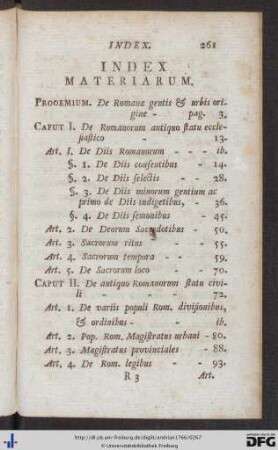 INDEX. 261
INDEX
MATERIARUM.
PROOEMIUM. De Romanæ gentis & urbis ori-
gine - pag. 3.
CAPUT I. De Romanorum antiquo statu eccle-
siastico - - 13.
Art. I. De Diis Romanorum - - - ib.
§. 1. De Diis consentibus - 14.
§. 2. De Diis selectis - - 28.
§. 3. De Diis minorum gentium ac
primo de Diis indigetibus, - 36.
§. 4. De Diis semonibus - 45.
Art. 2. De Deorum Sacerdotibus 50.
Art. 3. Sacrorum ritus - - 55.
Art. 4. Sacrorum tempora - - 59.
Art. 5. De Sacrorum loco - - 70.
CAPUT II. De antiquo Romanorum statu civi-
li - - 72.
Art. 1. De variis populi Rom. divisionibus,
& ordinibus - - ib.
Art. 2. Pop. Rom. Magistratus urbani - 80.
Art. 3. Magistratus provinciales - 88.
Art. 4. De Rom. legibus - - 93.
R 3 Art.
http://dl.ub.uni-freiburg.de/diglit/andrian1766/0267
© Universitätsbibliothek Freiburg
gefördert durch die
DFG